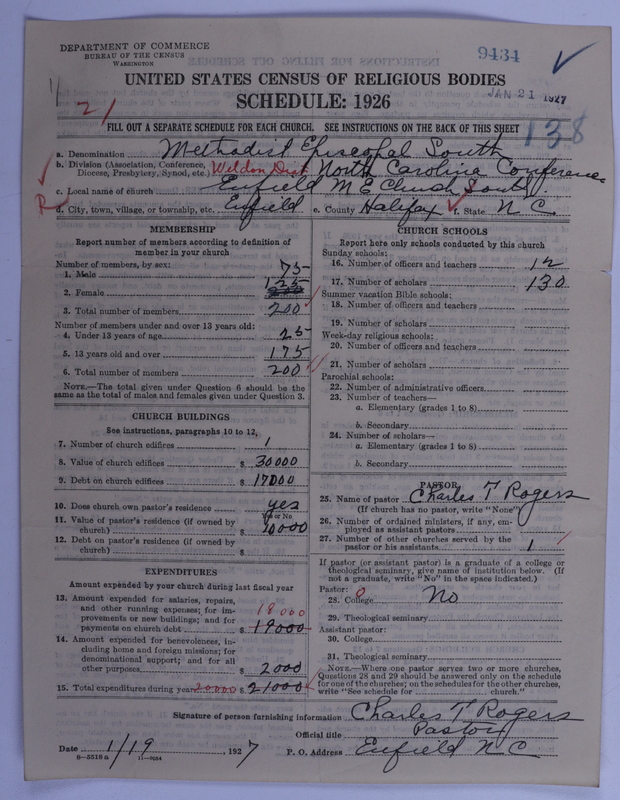 DEPARTMENT OF COMMERCE
BUREAU OF THE CENSUS
WASHINGTON
9434
UNITED STATES CENSUS OF RELIGIOUS BODIES
JAN 21 1927
SCHEDULE: 1926
2/
138
FILL OUT A SEPARATE SCHEDULE FOR EACH CHURCH. SEE INSTRUCTIONS ON THE BACK OF THIS SHEET
a. Denomination Methodist Episcopal South
b. Division (Association, Conference, Diocese, Presbytery, Synod, etc.) Weldon Dist. North Carolina Conference
c. Local name of church Enfield M E Church South.
R
d. City, town, village, or township, etc. Enfield e. County Halifax f. State N C.
MEMBERSHIP
Report number of members according to definition of
member in your church
Number of members by sex:
1. Male 75
2. Female 125
3. Total number of members 200
Number of members under and over 13 years old:
4. Under 13 years of age 25
5. 13 years old and over 175
6. Total number of members 200
NOTE.—The total given under Question 6 should be the
same as the total of males and females given under Question 3.
CHURCH BUILDINGS
See instructions, paragraphs 10 to 12,
7. Number of church edifices 1
8. Value of church edifices $ 30000
9. Debt on church edifices $ 17000
10. Does church own pastor's residence yes
Yes or No
11. Value of pastor's residence (if owned by
church) $ 10000
12. Debt on pastor's residence (if owned by
church) $
EXPENDITURES
Amount expended by your church during last fiscal year
13. Amount expended for salaries, repairs,
and other running expenses; for im-
provements or new buildings; and for
payments on church debt 18000 $ 19000
14. Amount expended for benevolences, in-
cluding home and foreign missions; for
denominational support; and for all
other purposes $ 2000
15. Total expenditures during year 20000 $ 21000
CHURCH SCHOOLS
Report here only schools conducted by this church
Sunday schools:
16. Number of officers and teachers 12
17. Number of scholars 130
Summer vacation Bible schools:
18. Number of officers and teachers
19. Number of scholars
Week-day religious schools:
20. Number of officers and teachers
21. Number of scholars
Parochial schools:
22. Number of administrative officers
23. Number of teachers—
a. Elementary (grades 1 to 8)
b. Secondary
24. Number of scholars—
a. Elementary (grades 1 to 8)
b. Secondary
PASTOR
25. Name of pastor Charles T Rogers
(If church has no pastor, write "None")
26. Number of ordained ministers, if any, em-
ployed as assistant pastors
27. Number of other churches served by the
pastor or his assistants 1
If pastor (or assistant pastor) is a graduate of a college or
theological seminary, give name of institution below. (If
not a graduate, write "No" in the space indicated.)
Pastor: 0
28. College No
29. Theological seminary
Assistant pastor:
30. College
31. Theological seminary
NOTE.—Where one pastor serves two or more churches,
Questions 28 and 29 should be answered only on the schedule
for one of the churches; on the schedules for the other churches,
write "See schedule for church."
Signature of person furnishing information Charles T Rogers
Official title Pastor
Date 1/19 1927 P. O. Address Enfield N C
8—5518 a 11—9684